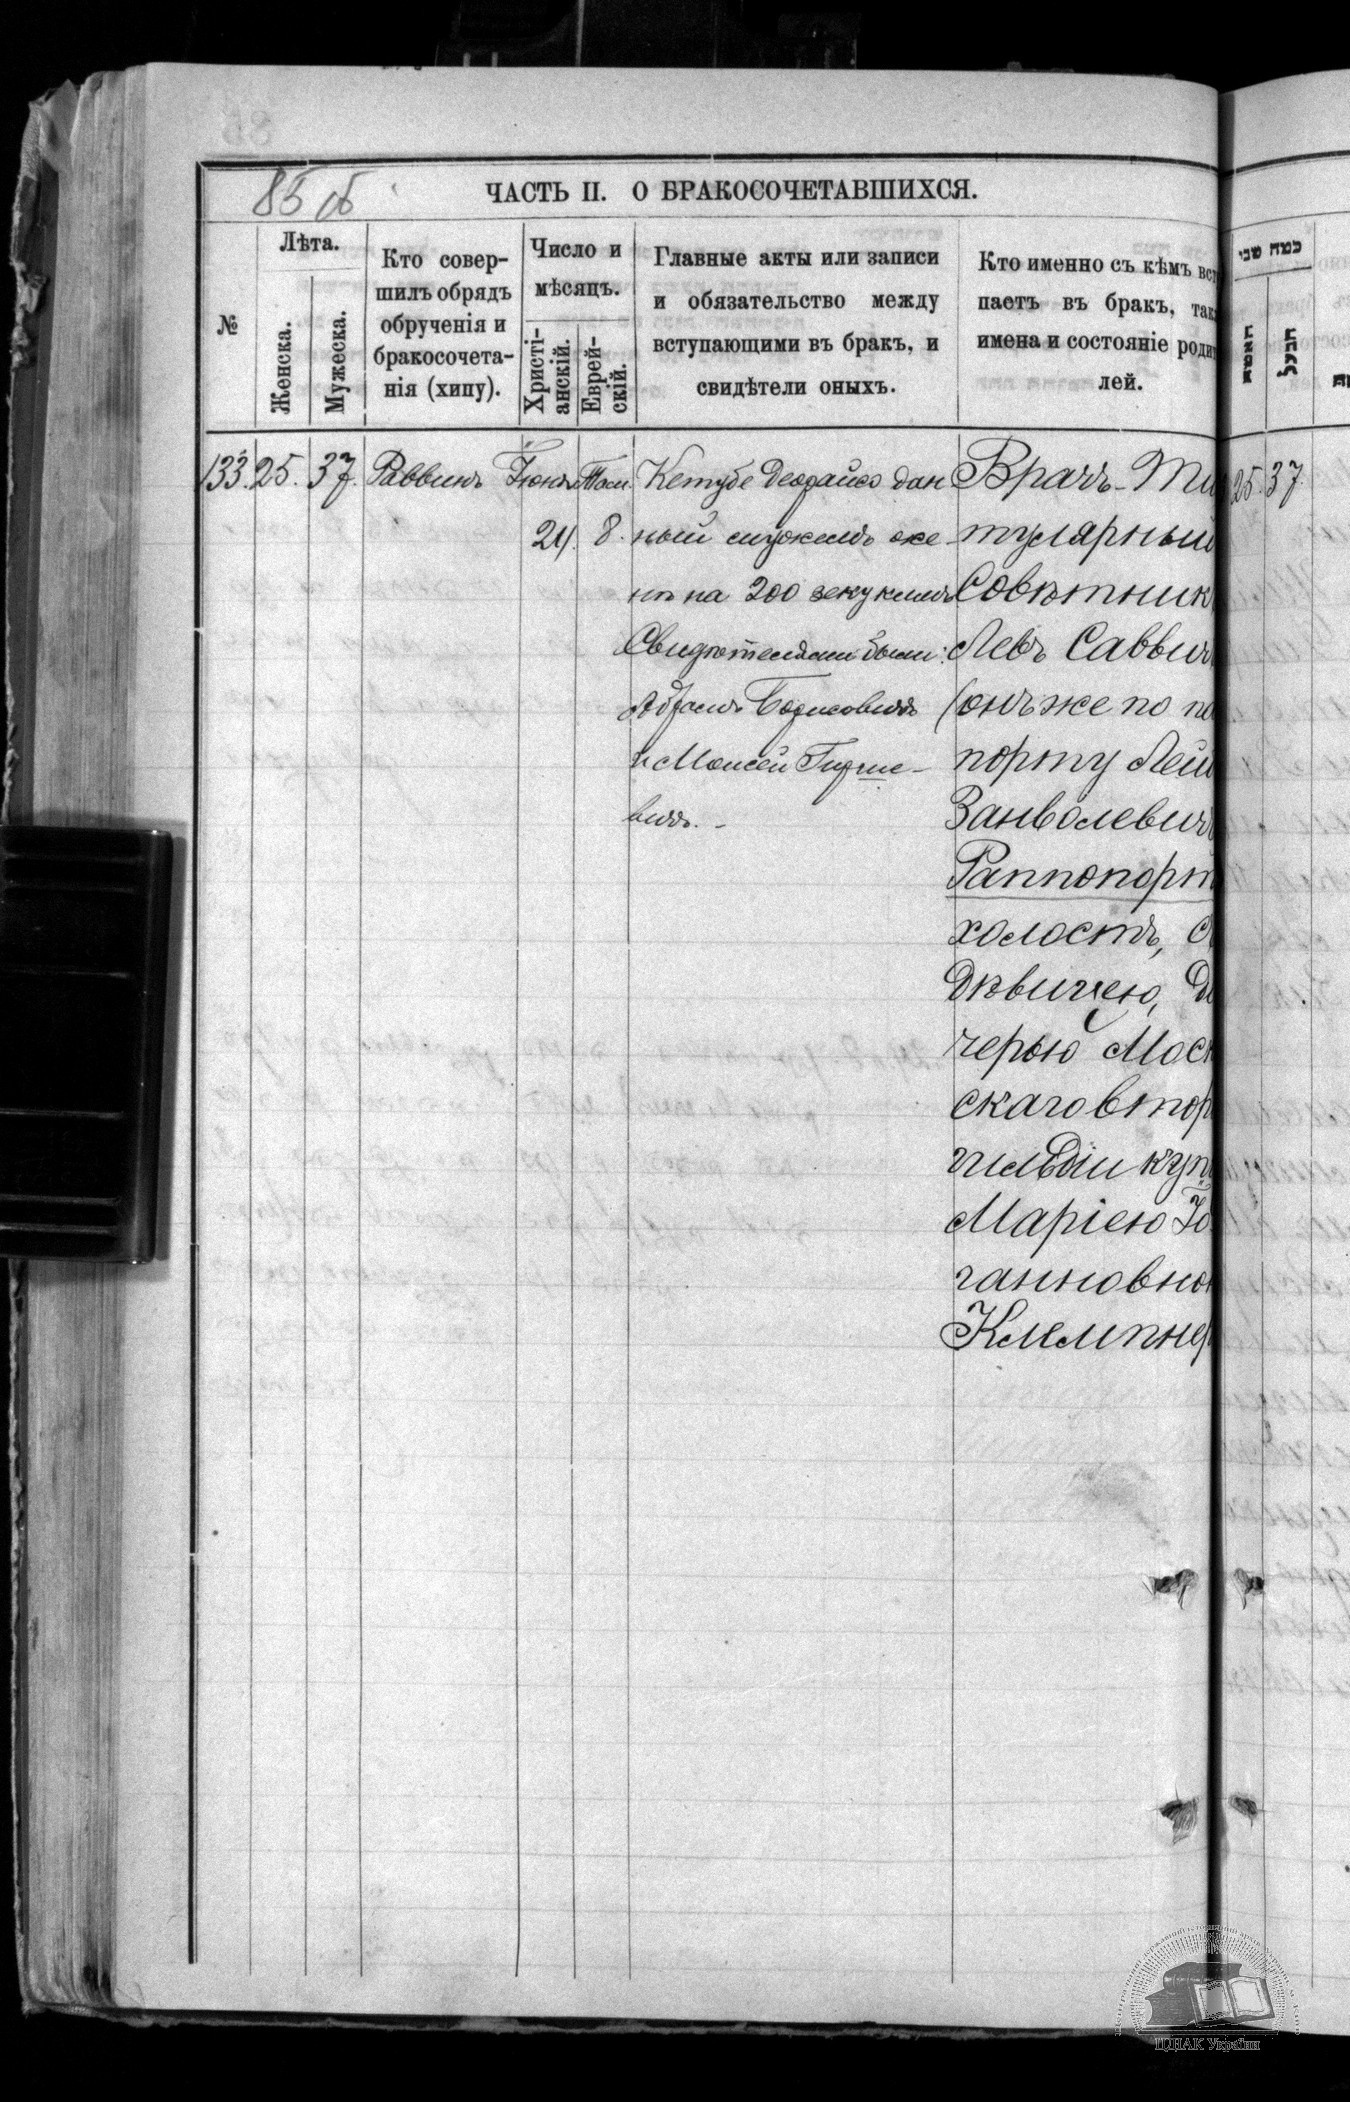 85 об
ЧАСТЬ II. О БРАКОСОЧЕТАВШИХСЯ.
№
Лѣта.
Женска.
Мужеска.
Кто совер-
шилъ обрядъ
обрученія и
бракосочета-
нія (хипу).
Число и
мѣсяцъ.
Христі-
анскій.
Еврей-
скій.
Главные акты или записи
и обязательство между
вступающими въ бракъ, и
свидѣтели оныхъ.
Кто именно съ кѣмъ вст
паетъ въ бракъ, так
имена и состояніе родит
лей.
כמה שני
האשה
הבעל
133. 25. 37. Раввинъ Іюнь Там.
24. 8.
Кетубе Деорайсо дан
ный мужемъ же
нѣ на 200 зекукимъ
Свидѣтелями были:
Абрамъ Борисовичъ
и Моисей Гирше-
вичъ. -
Врачъ-Ти
тулярный
Совѣтник
Левъ Саввич
(онъ же по па
порту Лей
Занволевич
Раппопорт
холостъ, с
Дѣвицею, До
черью Моск
скаго втор
гильдіи куп
Маріею Іо
ганновно
Клемпнер
25. 37.
ЦДІАК України